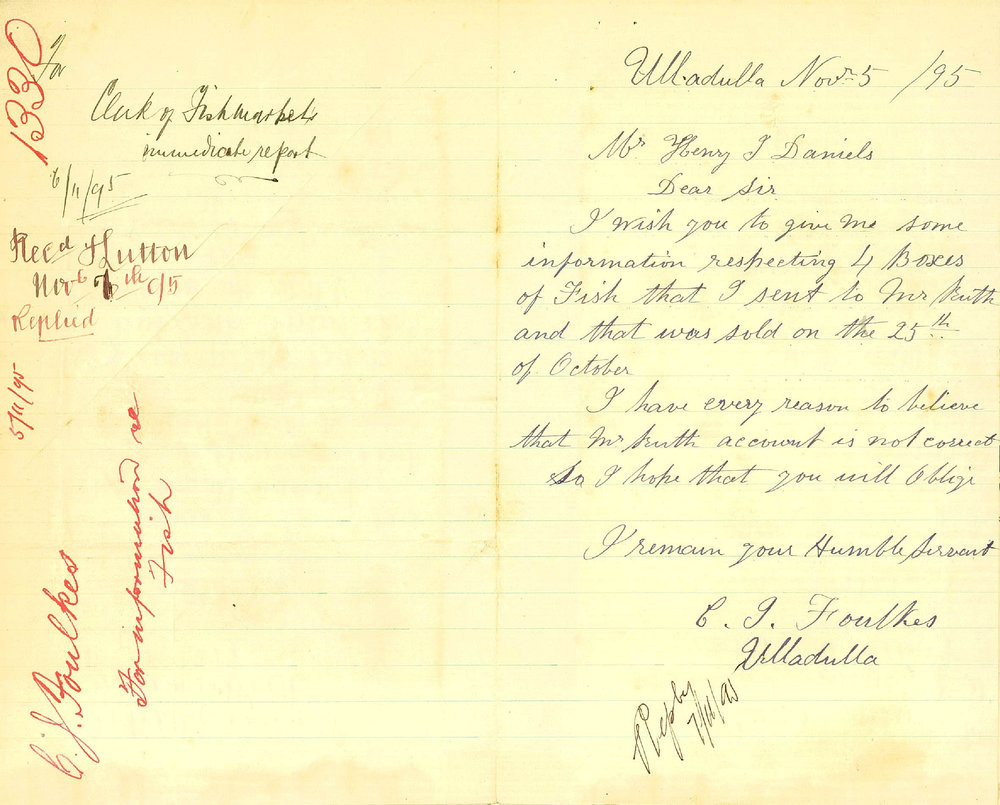 1330
For
Clerk of Fishmarkets
immediate report
6/11/95
Recd Hutton
Novb 6th 95
Replied
5/11/95
C. J. Foulkes
For information re
Fish
Ulladulla Novr 5 /95
Mr Henry J Daniels
Dear Sir
I wish you to give me some
information respecting 4 Boxes
of Fish that I sent to Mr Ruth
and that was sold on the 25th
of October
I have every reason to believe
that Mr Ruth account is not correct
so I hope that you will Oblige
I remain your Humble Servant
C. J. Foulkes
Ulladulla
Reply
7/11/95